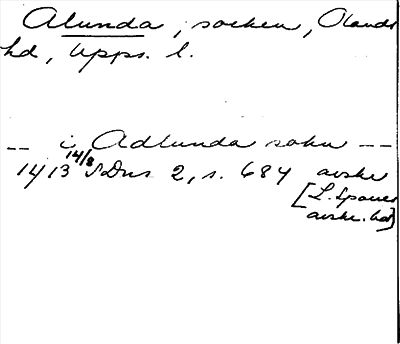 Alunda, socken, Olands
hd, Upps. l.
-- i Adlunda sokn --
1413 14/8 SDns 2, s. 684 avskr
[L. Sparres
avskr. bd]